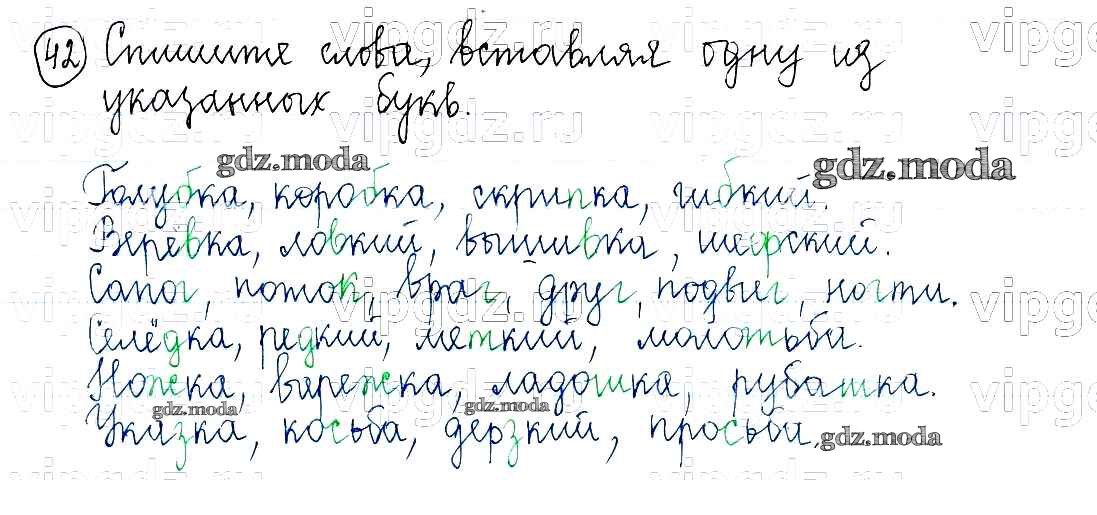 42 Спишите слова, вставляя одну из
указанных букв.
gdz.moda
gdz.moda
Голубка, коробка, скрипка, гибкий.
Верёвка, ловкий, вышивка, шефский.
Сапог, поток, враг, друг, подвиг, ногти.
Селёдка, редкий, меткий, молотьба.
Ножка, варежка, ладошка, рубашка.
gdz.moda
gdz.moda
Указка, косьба, дерзкий, просьба.
gdz.moda
vipgdz.ru